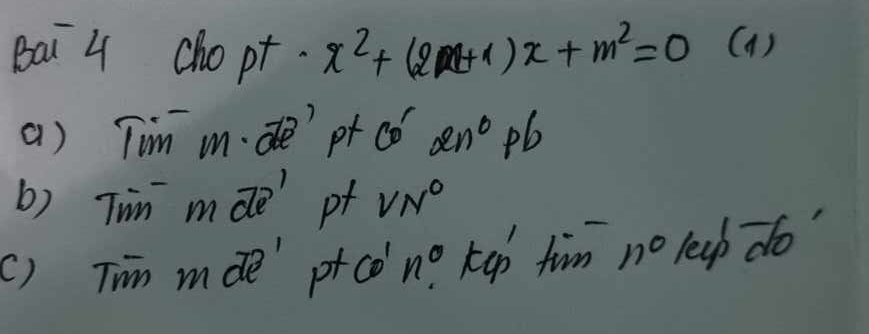 Bài 4 Cho pt . x² + (2m+1)x + m² = 0 (1)
a) Tìm m. để pt có 2n⁰ pb
b) Tìm m để pt VN⁰
c) Tìm m để pt có n⁰. kép tìm n⁰ kép đó